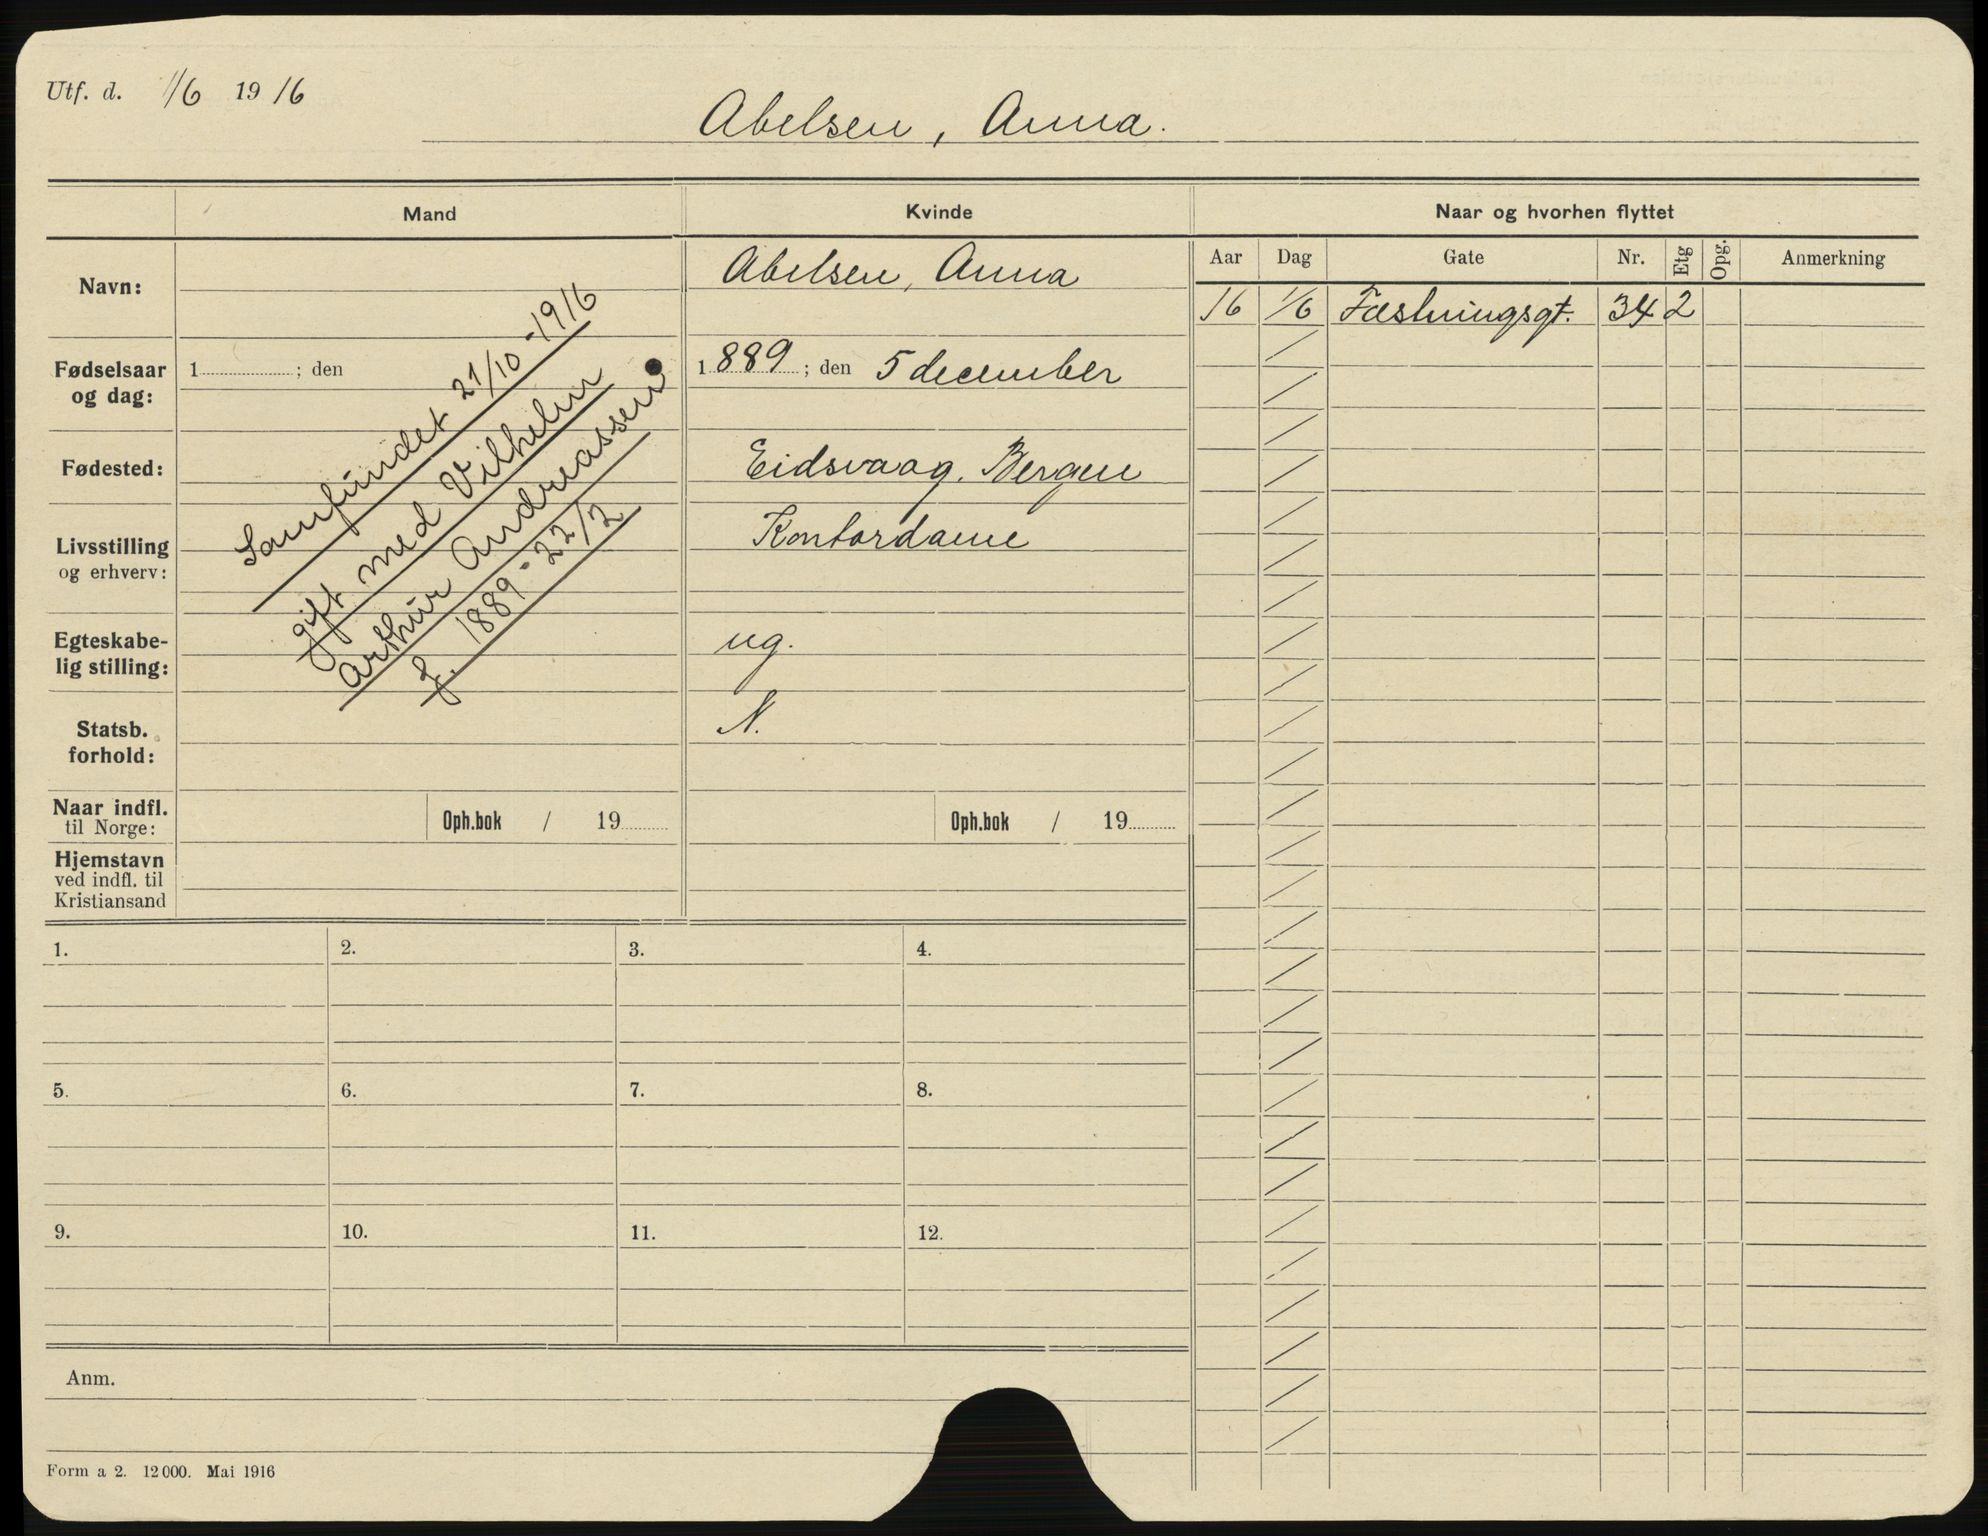 Utf. d. 1/6 19 16
Abelsen, Anna.
Mand
Kvinde
Naar og hvorhen flyttet
Aar Dag Gate Nr. Etg Opg. Anmerkning
16 1/6 Fæstningsgt. 34 2
Navn:
Abelsen, Anna
Fødselsaar
og dag:
1 ; den
1889 ; den 5 december
Fødested:
Eidsvaag. Bergen
Livsstilling
og erhverv:
Kontordame
Egteskabe-
lig stilling:
ug.
Statsb.
forhold:
N.
Samfundet 21/10 - 1916
gift med Vilhelm
Arthur Andreassen
f. 1889 - 22/2
Naar indfl.
til Norge:
Oph.bok / 19
Oph.bok / 19
Hjemstavn
ved indfl. til
Kristiansand
1. 2. 3. 4.
5. 6. 7. 8.
9. 10. 11. 12.
Anm.
Form a 2. 12000. Mai 1916